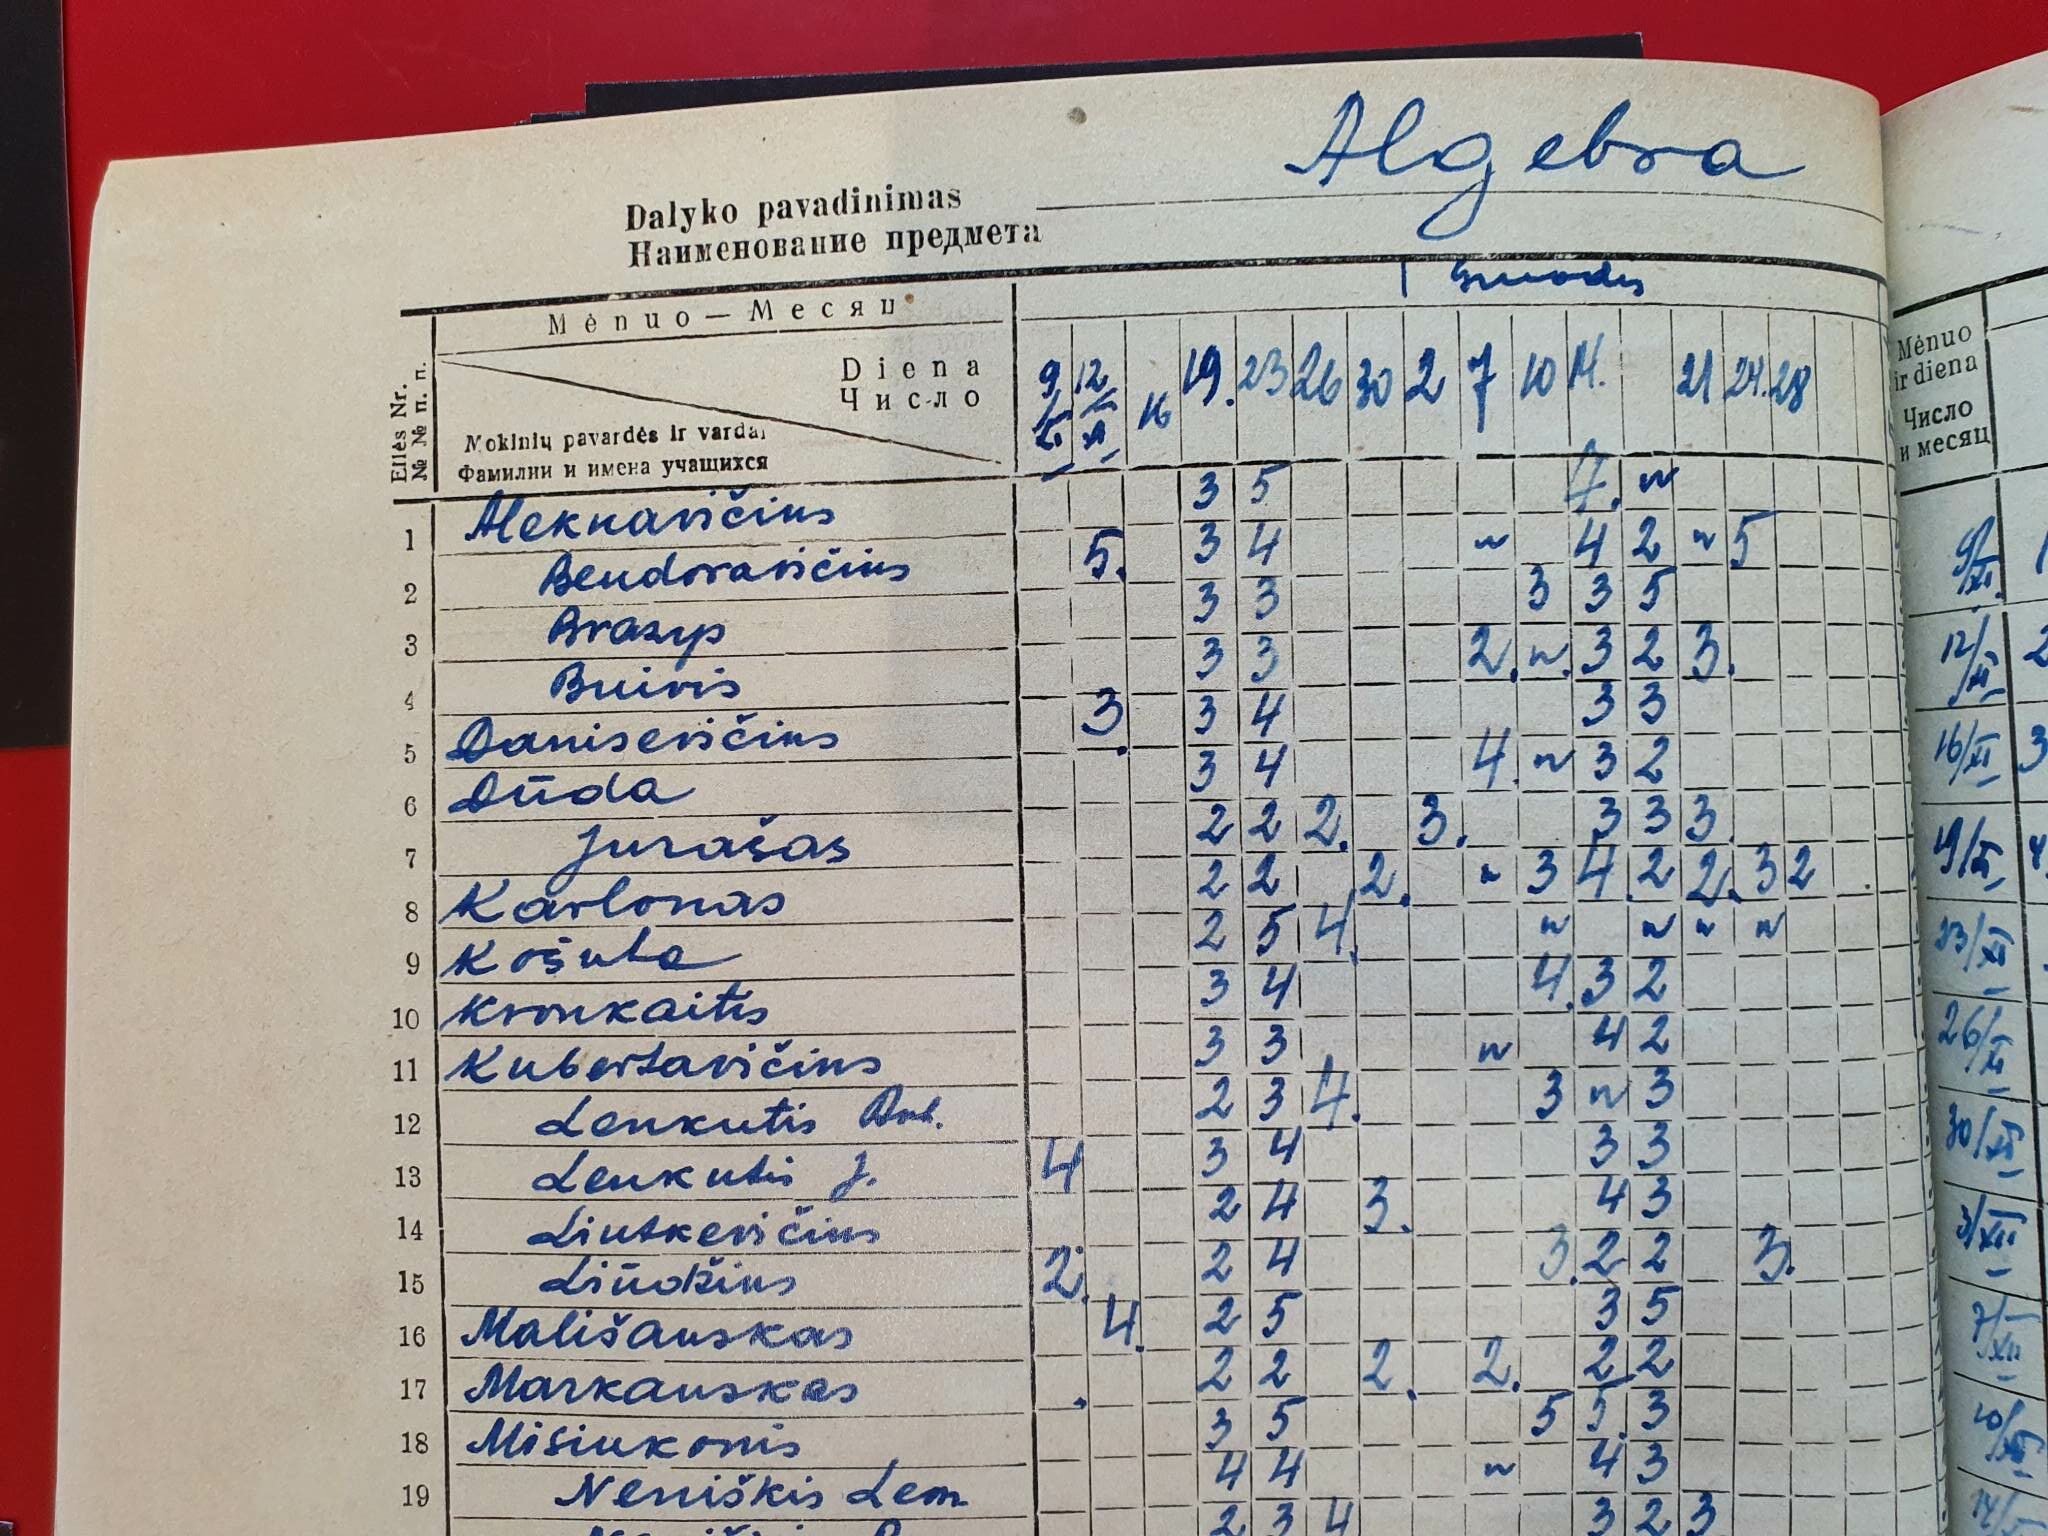 Algebra
Dalyko pavadinimas
Наименование предмета
Gruodis
Mėnuo — Месяц
Eilės Nr.
№ № п. п.
Diena
Число
Mokinių pavardės ir vardai
Фамилии и имена учащихся
9/XI 12/XI 16 19. 23 26 30 2 7 10 14. 21 24. 28
1 Aleknavičius 3 5 4. n
2 Bendoravičius 5. 3 4 n 4 2 n 5
3 Brazyp 3 3 3 3 5
4 Buivis 3 3 2. n. 3 2 3.
5 Danisevičius 3. 3 4 3 3
6 Dūda 3 4 4. n 3 2
7 Jurašas 2 2 2. 3. 3 3 3.
8 Karlonas 2 2 2. n 3 4. 2 2. 3 2
9 Košuba 2 5 4. n n n n
10 Kronkaitis 3 4 4. 3 2
11 Kubertavičius 3 3 n 4 2
12 Lenkutis 2 3 4. 3 n 3
13 Lenkutis J. 4 3 4 3 3
14 Liutkevičius 2 4 3. 4 3
15 Liūdžius 2. 2 4 3. 2 2 3.
16 Mališauskas 4. 2 5 3 5
17 Markauskas 2 2 2. 2. 2 2
18 Misiukonis 3 5 5 5. 3
19 Neniškis Lem. 4 4 n 4 3
2 3 4 3 2 3
Mėnuo
ir diena
Число
и месяц
9/XI.
12/XI 2
16/XI 3
19/XI 4
23/XI
26/XI
30/XI
3/XII
7/XII
10/XII
14/